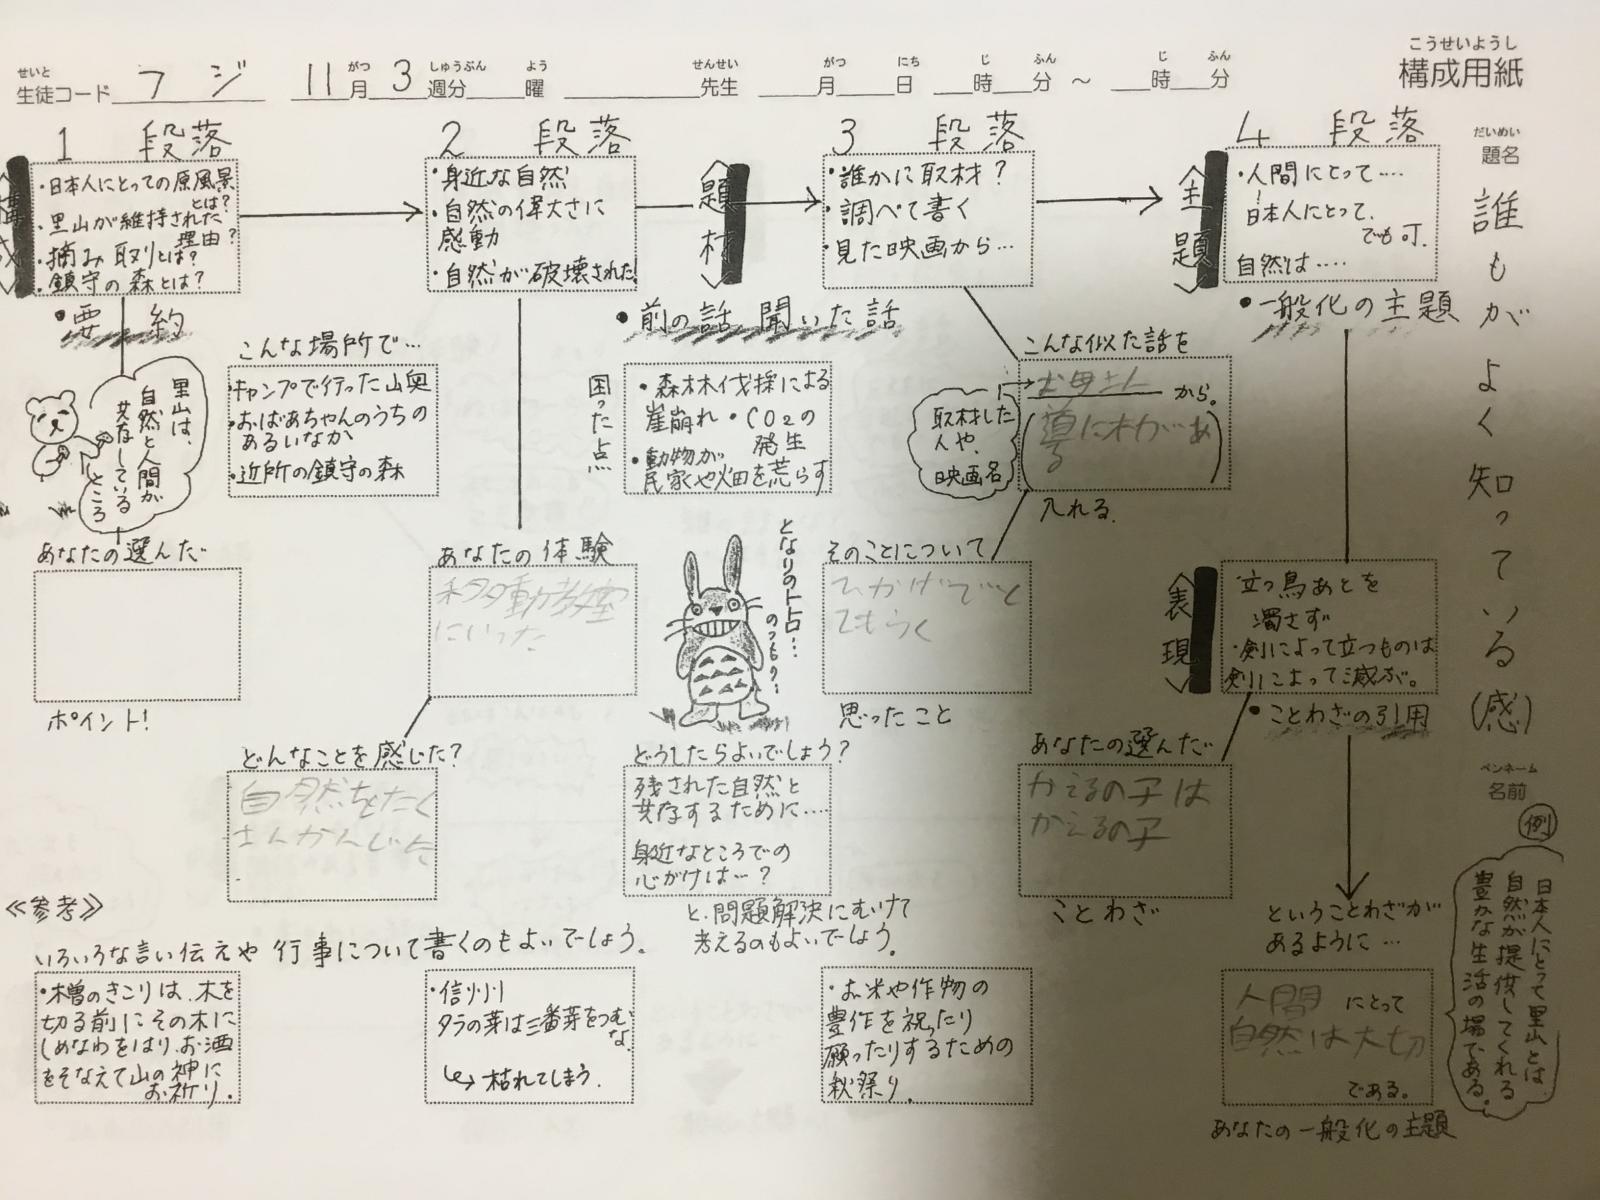 構成用紙
こうせいようし
生徒コード フジ 11月3週分 曜 先生 月 日 時 分 ～ 時 分
せいと がつ しゅうぶん よう せんせい がつ にち じ ふん じ ふん
題名
だいめい
誰もがよく知っている(感)
名前
ペンネーム
1 段落
・日本人にとっての原風景
とは?
・里山が維持された
理由?
・摘み取りとは?
鎮守の森とは?
・要約
里山は、
自然と人間が
共存している
ところ
あなたの選んだ
ポイント!
2 段落
・身近な自然
・自然の偉大さに
感動
・自然が破壊された
こんな場所で…
・キャンプで行った山奥
・おばあちゃんのうちの
あるいなか
・近所の鎮守の森
あなたの体験
移動教室
にいった
どんなことを感じた?
自然をたく
さんかんじた
〈題材〉
3 段落
・誰かに取材?
・調べて書く
・見た映画から…
・前の話 聞いた話
困った点
・森林伐採による
崖崩れ・CO2の
発生
・動物が
民家や畑を荒らす
こんな似た話を
お母さん
から。
入れる.
取材した
人や、
映画名
そのことについて
思ったこと
となりのトトロ…
のつもり…
どうしたらよいでしょう?
残された自然と
共存するために….
身近なところでの
心がけは…?
と、問題解決にむけて
考えるのもよいでしょう。
〈主題〉
4 段落
・人間にとって….
日本人にとって.
でも可.
自然は….
・一般化の主題
〈表現〉
立つ鳥あとを
濁さず
・剣によって立つものは
剣によって滅ぶ。
・ことわざの引用
あなたの選んだ
かえるの子は
かえるの子
ことわざ
ということわざが
あるように…
人間 にとって
自然は大切
である。
あなたの一般化の主題
例
日本人にとって里山とは
自然が提供してくれる
豊かな生活の場である。
≪参考≫
いろいろな言い伝えや行事について書くのもよいでしょう。
のきこりは、木を
切る前にその木に
しめなわをはり、お酒
をそなえて山の神に
お祈り.
・信州
タラの芽は三番芽をつむ
な
↳ 枯れてしまう.
・お米や作物の
豊作を祝ったり
願ったりするための
秋祭り.